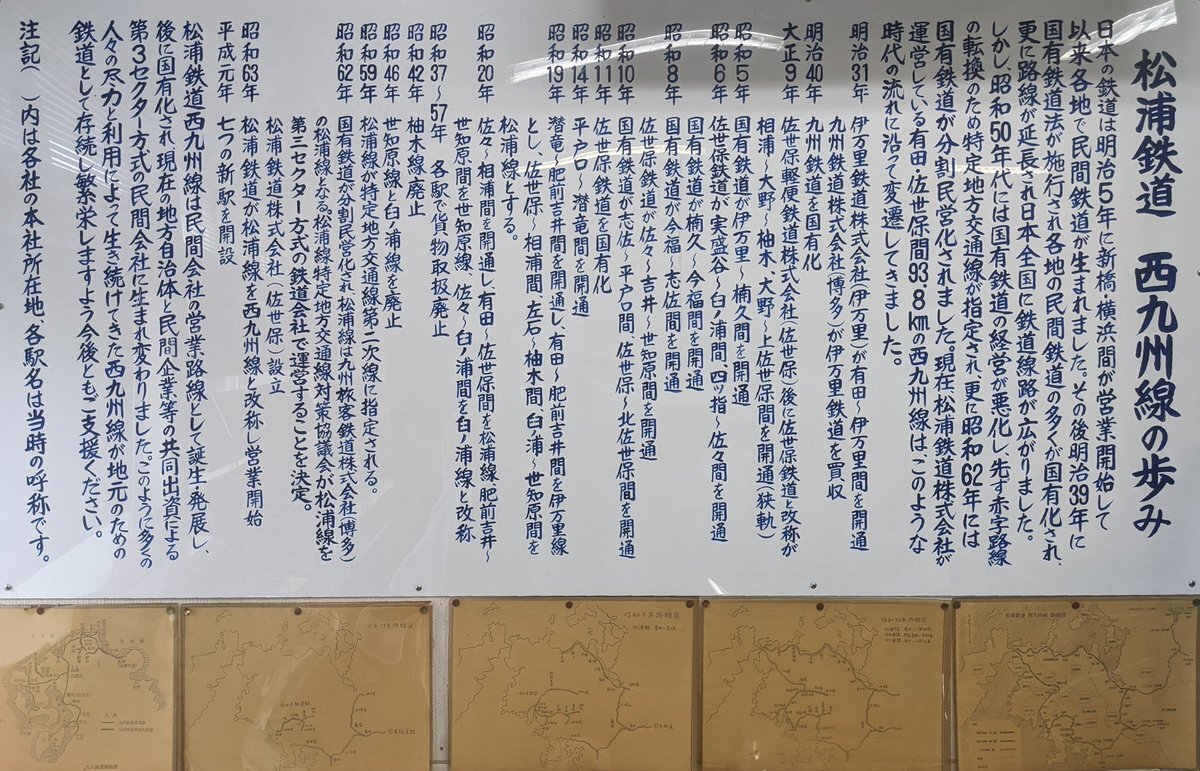 松浦鉄道 西九州線の歩み
日本の鉄道は明治5年に新橋・横浜間が営業開始して
以来各地で民間鉄道が生まれました。その後明治39年に
国有鉄道法が施行され各地の民間鉄道の多くが国有化され、
更に路線が延長され日本全国に鉄道線路が広がりました。
しかし、昭和50年代には国有鉄道の経営が悪化し、先ず赤字路線
の転換のため特定地方交通線が指定され、更に昭和62年には
国有鉄道が分割民営化されました。現在松浦鉄道株式会社が
運営している有田・佐世保間93.8kmの西九州線は、このような
時代の流れに沿って変遷してきました。
明治31年 伊万里鉄道株式会社(伊万里)が有田~伊万里間を開通
九州鉄道株式会社(博多)が伊万里鉄道を買収
明治40年 九州鉄道を国有化
大正9年 佐世保軽便鉄道株式会社(佐世保)後に佐世保鉄道と改称が
相浦~大野~柚木、大野~上佐世保間を開通(狭軌)
昭和5年 国有鉄道が伊万里~楠久間を開通
昭和6年 佐世保鉄道が実盛谷~臼ノ浦間 四ツ指~佐々間を開通
国有鉄道が楠久~今福間を開通
昭和8年 国有鉄道が今福~志佐間を開通
佐世保鉄道が佐々~吉井~世知原間を開通
昭和10年 国有鉄道が志佐~平戸口間、佐世保~北佐世保間を開通
昭和11年 佐世保鉄道を国有化
昭和14年 平戸口~潜竜間を開通
昭和19年 潜竜~肥前吉井間を開通し、有田~肥前吉井間を伊万里線
とし、佐世保~相浦間、左石~柚木間、臼ノ浦~世知原間を
松浦線とする。
昭和20年 佐々~相浦間を開通し、有田~佐世保間を松浦線、肥前吉井~
世知原間を世知原線、佐々~臼ノ浦間を臼ノ浦線と改称
昭和37~57年 各駅で貨物取扱廃止
昭和42年 柚木線廃止
昭和46年 世知原線と臼ノ浦線を廃止
昭和59年 松浦線が特定地方交通線第二次線に指定される。
昭和62年 国有鉄道が分割民営化され、松浦線は九州旅客鉄道株式会社(博多)
の松浦線となる。松浦線特定地方交通線対策協議会が松浦線を
第三セクター方式の鉄道会社で運営することを決定。
松浦鉄道株式会社(佐世保)設立
昭和63年 松浦鉄道が松浦線を西九州線と改称し営業開始
平成元年 七つの新駅を開設
松浦鉄道西九州線は民間会社の営業路線として誕生・発展し、
後に国有化され現在の地方自治体と民間企業等の共同出資による
第3セクター方式の民間会社に生まれ変わりました。このように多くの
人々の尽力と利用によって生き続けてきた西九州線が地元のための
鉄道として存続し繁栄しますよう今後ともご支援ください。
注記( )内は各社の本社所在地、各駅名は当時の呼称です。